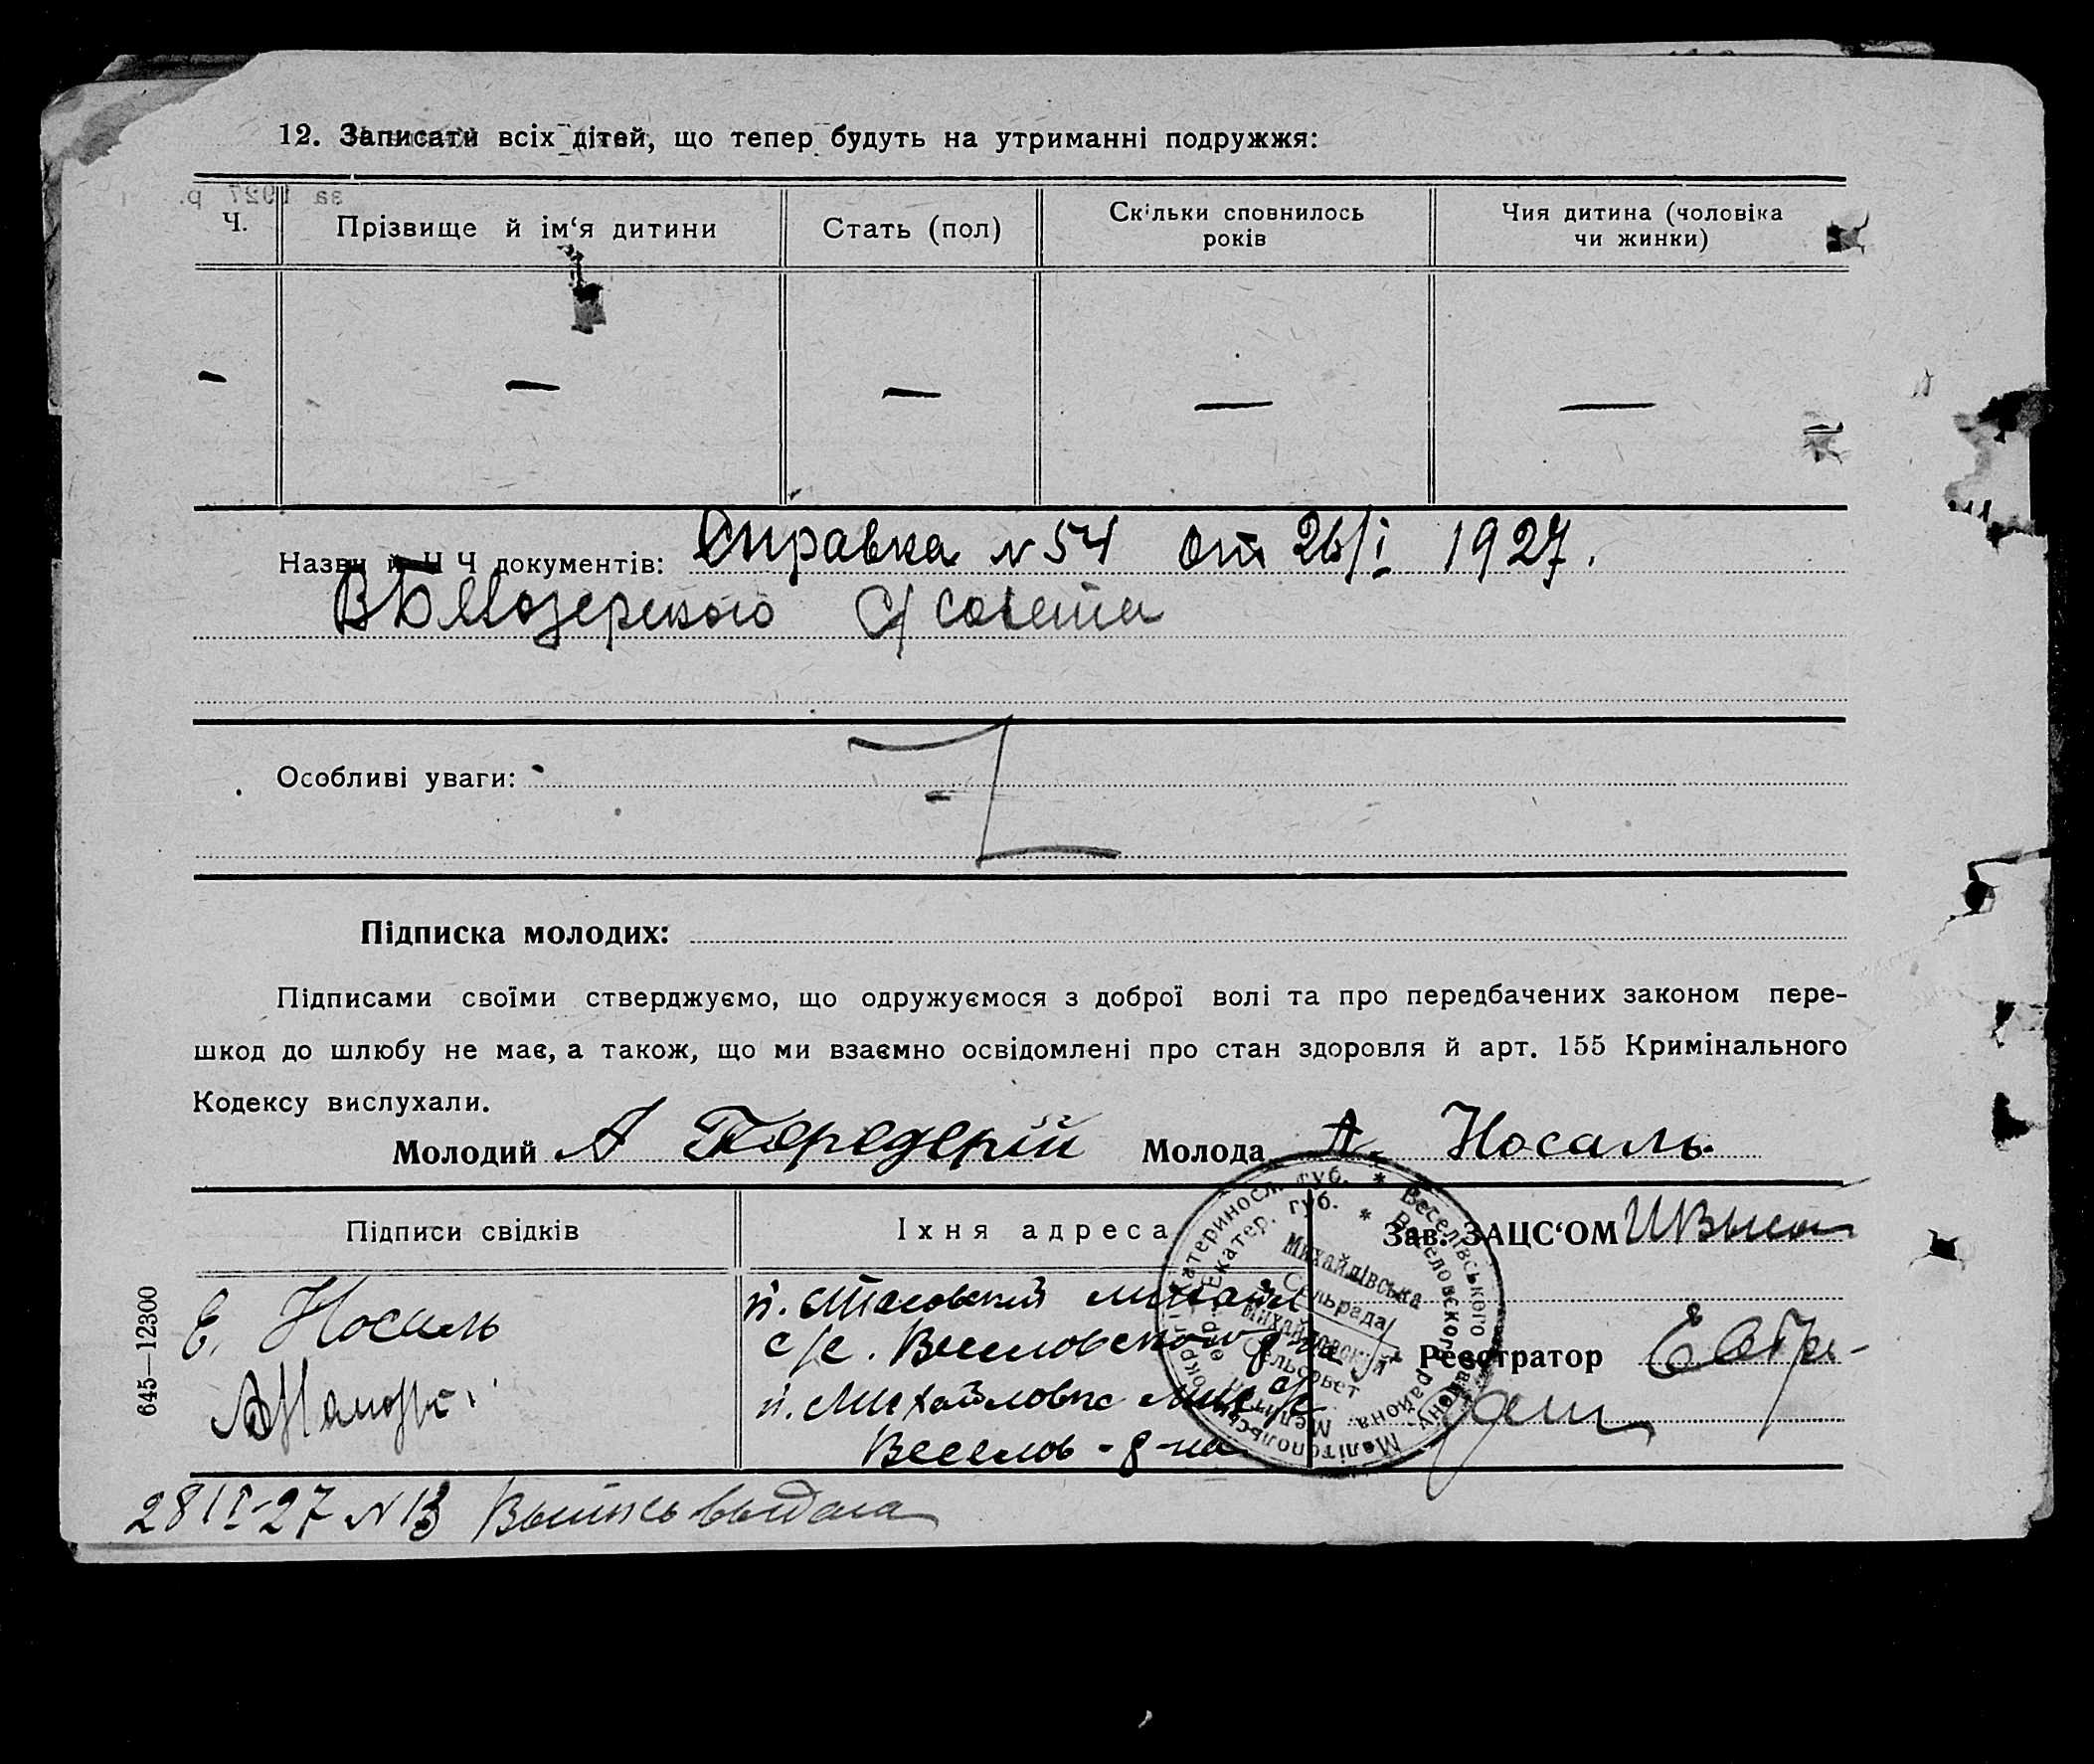 12. Записати всіх дітей, що тепер будуть на утриманні подружжя:
за 1927 р.
Ч.
Прізвище й ім‘я дитини
Стать (пол)
Скільки сповнилось
років
Чия дитина (чоловіка
чи жинки)
— — — — —
Назви й Ч Ч документів: Справка N 54 от 26/I 1927.
Білозерского с/совета
Особливі уваги:
Підписка молодих:
Підписами своїми стверджуємо, що одружуємося з доброї волі та про передбачених законом пере-
шкод до шлюбу не має, а також, що ми взаємно освідомлені про стан здоровля й арт. 155 Кримінального
Кодексу вислухали.
Молодий А Передерій Молода А. Носаль.
Підписи свідків
Їхня адреса
Зав. ЗАЦС‘ОМ
Е. Носаль
с/с. Веселовского р-на
п. Михайловка Мих с/с
Веселов-р-на
Реєстратор
Катеринос. губ. * Веселівського району Мелітопольськ. округи
Екатер. губ. * Веселовского района Мелитоп. окр.
Михайлівська
Сельрада
Михайловский
Сельсовет
645—12300
28/I-27 N 13 Выпись выдана